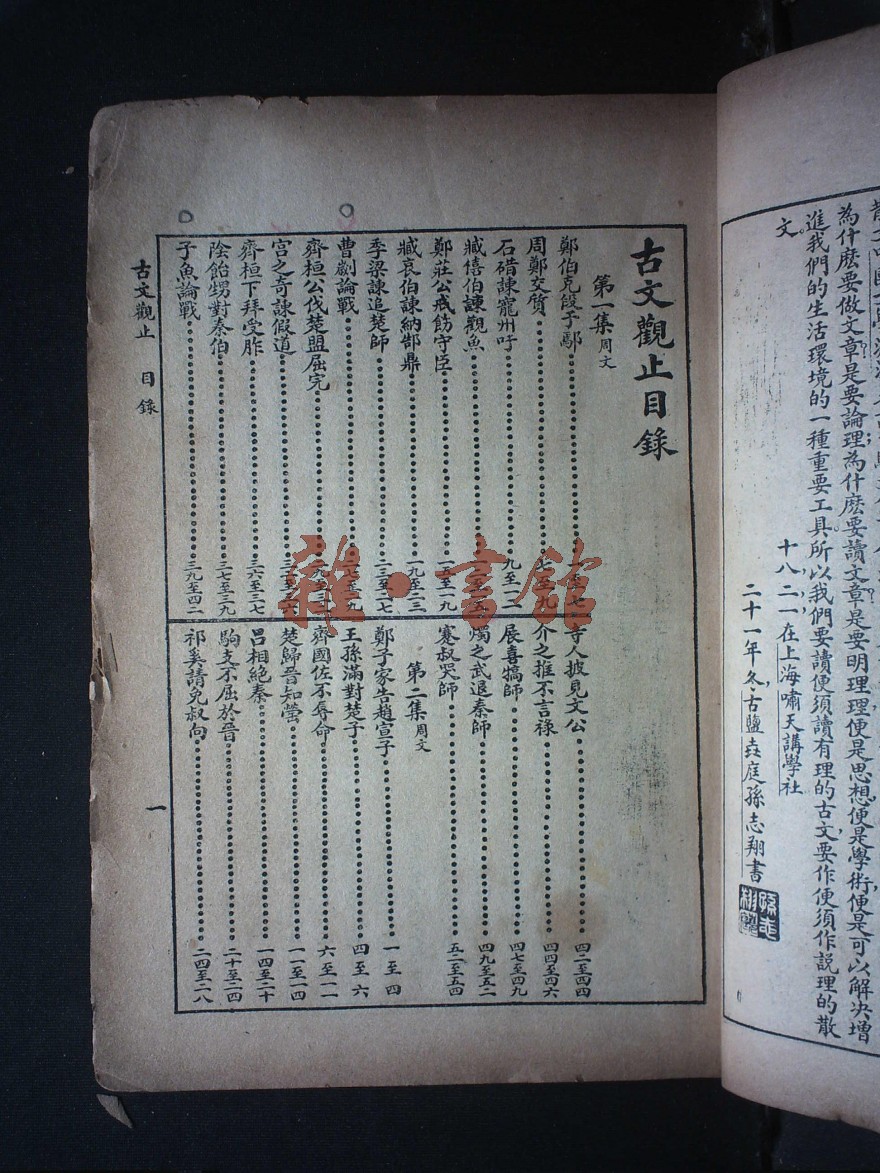 為什麽要做文章是要論理為什麽要讀文章是要明理理便是思想便是學術便是可以解決增
進我們的生活環境的一種重要工具所以我們要讀便須讀有理的古文要作便須作説理的散
文。
十八，二一，在上海嘯天講學社
二十一年冬，古鹽垚庭孫志翔書
古文觀止目錄
第一集周文
鄭伯克段于鄢 一至七
周鄭交質 七至九
石碏諫寵州吁 九至一二
臧僖伯諫觀魚
鄭莊公戒飭守臣 一五至一九
臧哀伯諫納郜鼎 一九至二三
季梁諫追楚師 二三至二七
曹劌論戰 二七至二九
齊桓公伐楚盟屈完
宮之奇諫假道
齊桓下拜受胙 三六至三七
陰飴甥對秦伯 三七至三九
子魚論戰 三九至四二
寺人披見文公 四二至四四
介之推不言祿 四四至四六
展喜犒師 四七至四九
燭之武退秦師 四九至五二
蹇叔哭師 五二至五四
第二集周文
鄭子家告趙宣子 一至四
王孫滿對楚子 四至六
齊國佐不辱命 六至一一
楚歸晉知罃 一一至一四
呂相絕秦 一四至二十
駒支不屈於晉 二十至二四
祁奚請免叔向 二四至二八
古文觀止 目錄
一
雜·書館